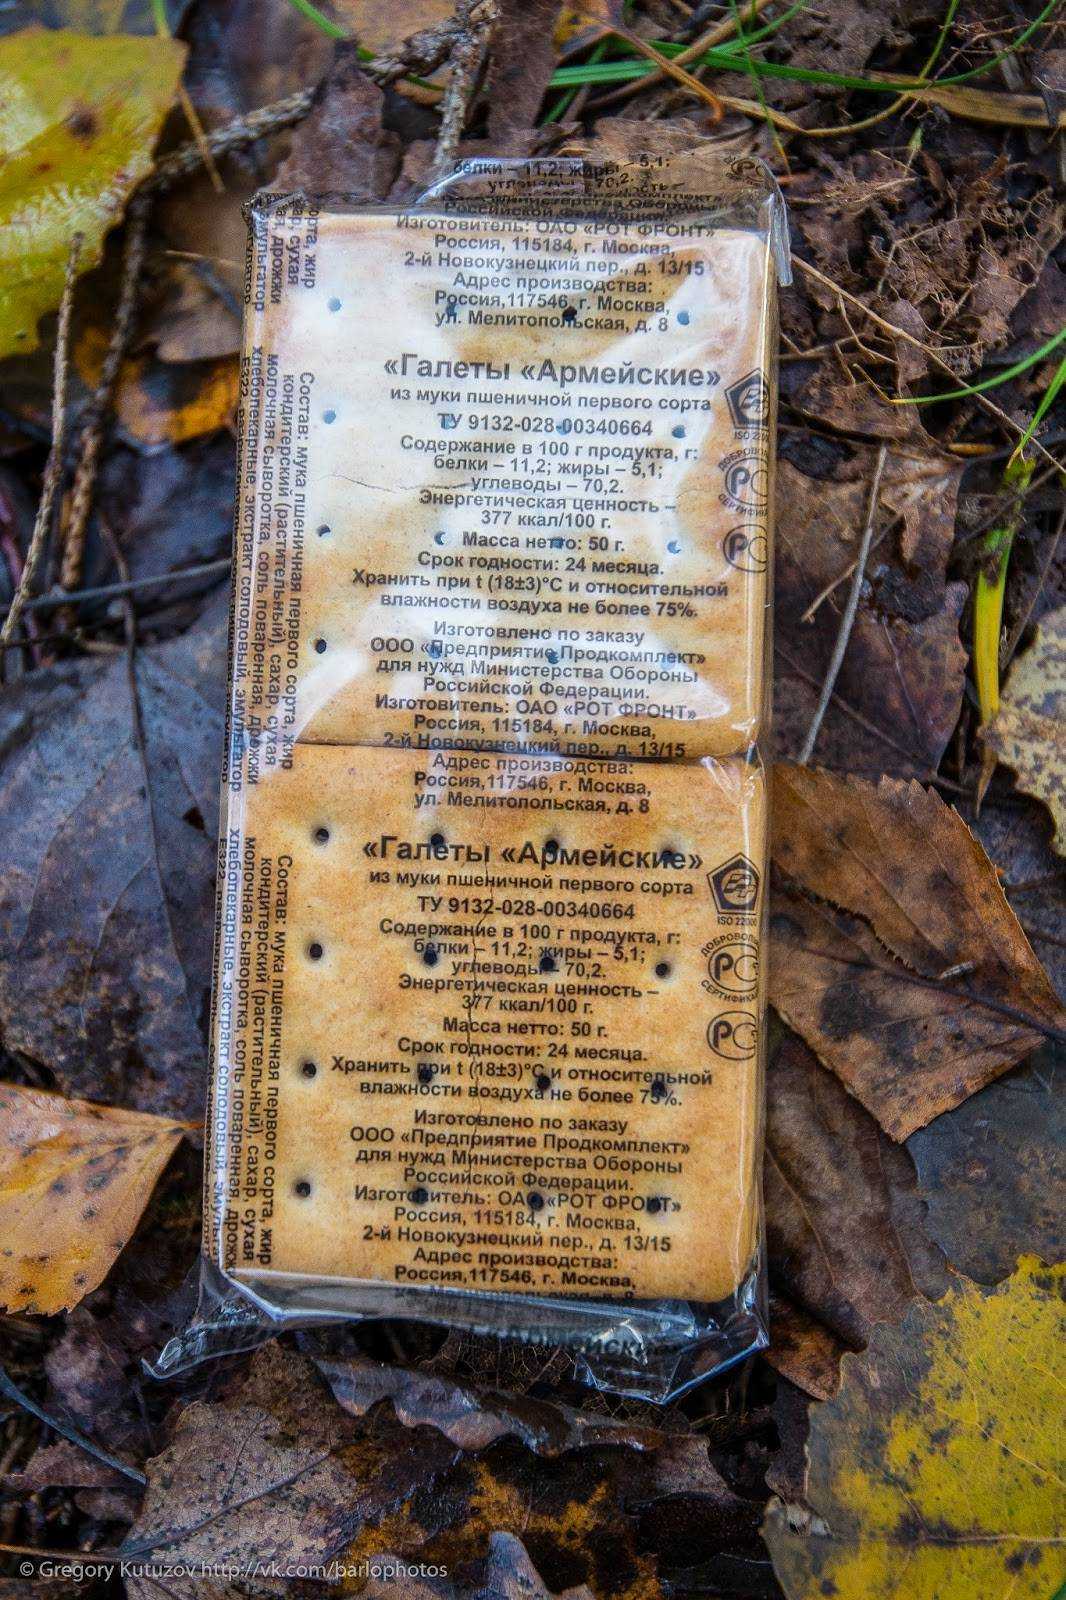 белки – 11,2; жиры – 5,1;
углеводы – 70,2.
Министерства Обороны
Российской Федерации.
Изготовитель: ОАО «РОТ ФРОНТ»
Россия, 115184, г. Москва,
2-й Новокузнецкий пер., д. 13/15
Адрес производства:
Россия,117546, г. Москва,
ул. Мелитопольская, д. 8
«Галеты «Армейские»
из муки пшеничной первого сорта
ТУ 9132-028-00340664
Содержание в 100 г продукта, г:
белки – 11,2; жиры – 5,1;
углеводы – 70,2.
Энергетическая ценность –
377 ккал/100 г.
Масса нетто: 50 г.
Срок годности: 24 месяца.
Хранить при t (18±3)°С и относительной
влажности воздуха не более 75%.
Изготовлено по заказу
ООО «Предприятие Продкомплект»
для нужд Министерства Обороны
Российской Федерации.
Изготовитель: ОАО «РОТ ФРОНТ»
Россия, 115184, г. Москва,
2-й Новокузнецкий пер., д. 13/15
Адрес производства:
Россия,117546, г. Москва,
ул. Мелитопольская, д. 8
«Галеты «Армейские»
из муки пшеничной первого сорта
ТУ 9132-028-00340664
Содержание в 100 г продукта, г:
белки – 11,2; жиры – 5,1;
углеводы – 70,2.
Энергетическая ценность –
377 ккал/100 г.
Масса нетто: 50 г.
Срок годности: 24 месяца.
Хранить при t (18±3)°С и относительной
влажности воздуха не более 75%.
Изготовлено по заказу
ООО «Предприятие Продкомплект»
для нужд Министерства Обороны
Российской Федерации.
Изготовитель: ОАО «РОТ ФРОНТ»
Россия, 115184, г. Москва,
2-й Новокузнецкий пер., д. 13/15
Адрес производства:
Россия,117546, г. Москва,
«Армейские»
сорта, жир
сухая
дрожжи
Состав: мука пшеничная первого сорта, жир
кондитерский (растительный), сахар, сухая
молочная сыворотка, соль поваренная, дрожжи
хлебопекарные, экстракт солодовый, эмульгатор
Е322
Состав: мука пшеничная первого сорта, жир
кондитерский (растительный), сахар, сухая
молочная сыворотка, соль поваренная, дрожжи
хлебопекарные, экстракт солодовый
Е322
ISO
РС
РС
ISO 22000
РС
РС
© Gregory Kutuzov http://vk.com/barlophotos